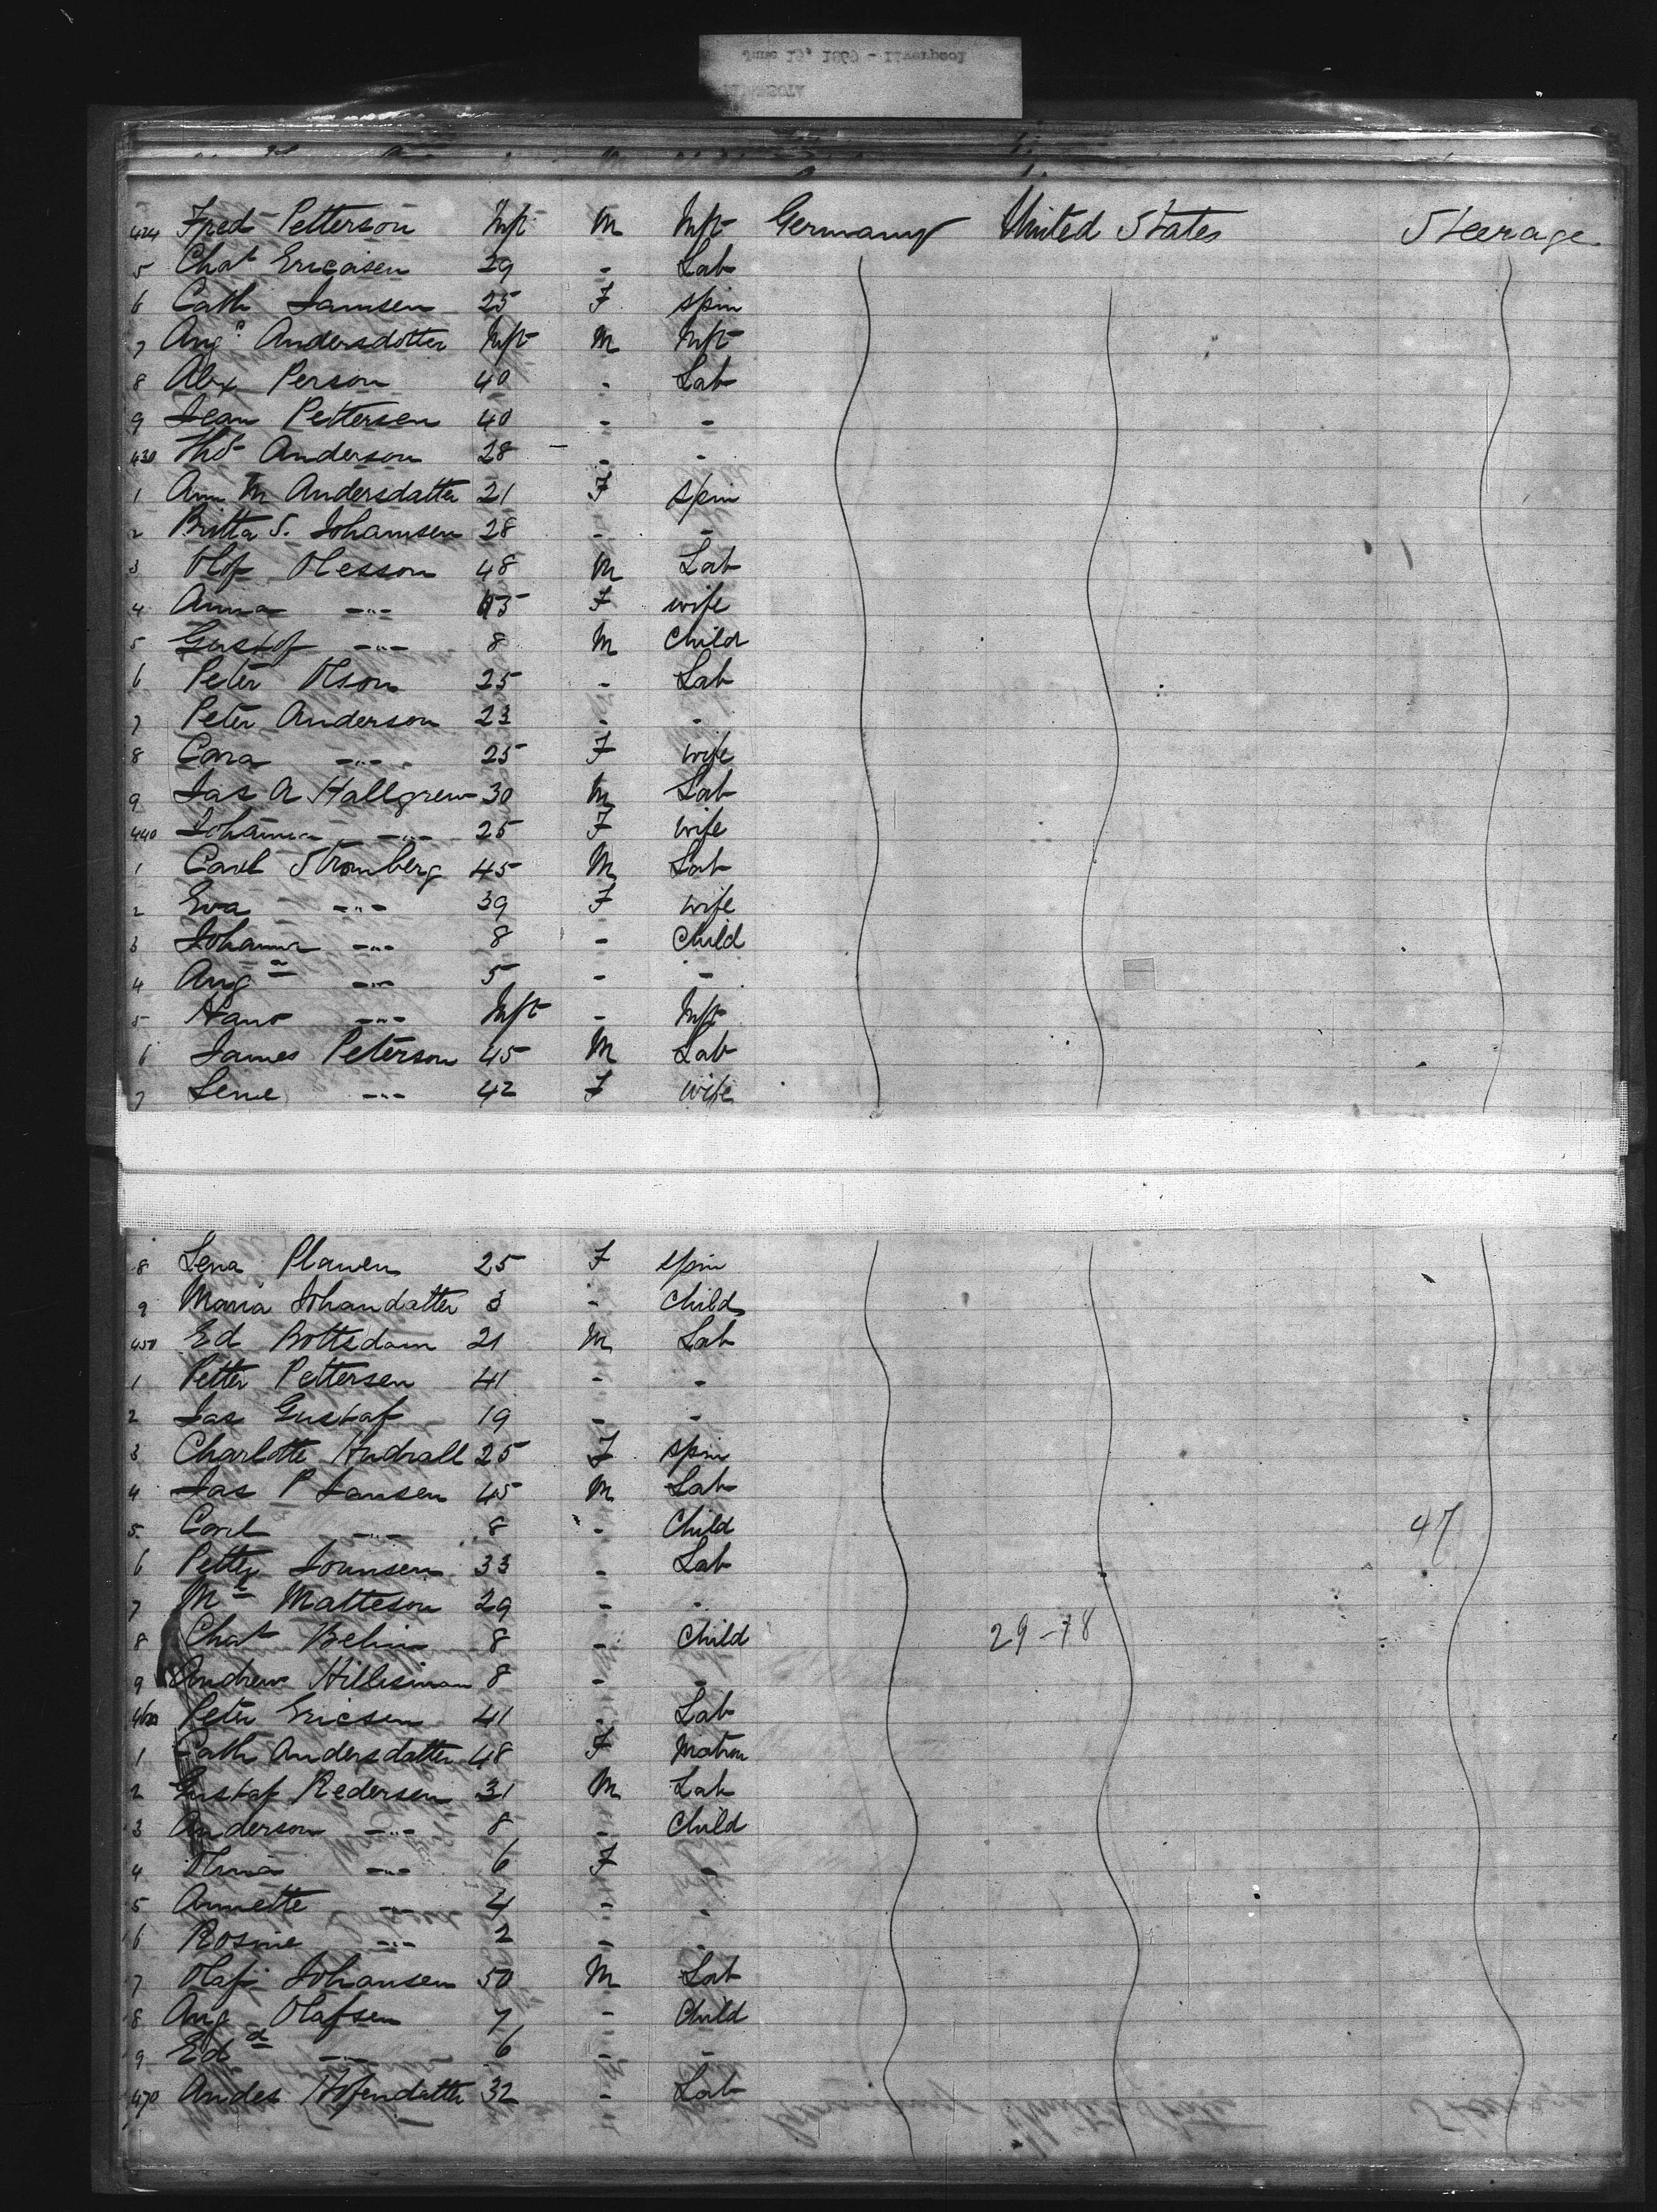 June 15, 1869 - Liverpool
424 Fred Petterson Inft M Inft Germany United States Steerage
5 Chas Ericasen 29 - Lab
6 Cath Jamsen 25 F spin
7 Aug Andersdotter Inft M Inft
8 Alex Person 40 - Lab
9 Jean Pettersen 40 - -
430 Thos Anderson 28 - -
1 Ann M Andersdatter 21 F spin
2 Britta S. Johamsen 28 - -
3 Olof Olesson 48 M Lab
4 Anna -"- 43 F wife
5 Gustof -"- 8 M Child
6 Peter Olson 25 - Lab
7 Peter Anderson 23 - -
8 Cara -"- 25 F wife
9 Jas A Hallgrew 30 M Lab
440 Johanna -"- 25 F wife
1 Carl Stromberg 45 M Lab
2 Eva -"- 39 F wife
3 Johanna -"- 8 - Child
4 Auga -"- 5 - -
5 Hans -"- Inft - Inft
6 James Peterson 45 M Lab
7 Lene -"- 42 F wife
8 Lena Plawen 25 F spin
9 Maria Johandatter 3 - Child
450 Ed Bottsdam 21 M Lab
1 Petter Pettersen 41 - -
2 Jas Gustaf 19 - -
3 Charlotte Hudrall 25 F spin
4 Jas P Jansen 45 M Lab
5 Carl -"- 8 - Child 47
6 Petter Jounsen 33 - Lab
7 Mr Matteson 29 - -
8 Chas Belin 8 - Child 29-78
9 Andrew Hillisman 8 - -
460 Peter Ericsen 41 - Lab
1 Cath Andersdatter 48 F Matron
2 Gustaf Redersen 31 M Lab
3 Anderson -"- 8 - Child
4 -"- 6 F -
5 Annette -"- 4 - -
6 Rosine -"- 2 - -
7 Olaf Johansen 50 M Lab
8 Aug Olafsen 7 - Child
9 Edd -"- 6 - -
470 Andes 32 - Lab